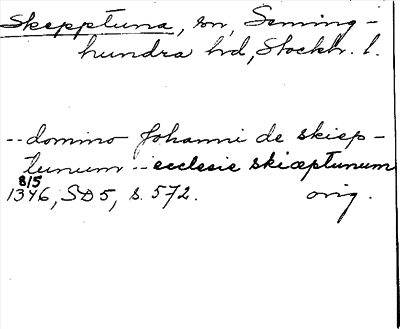 Skepptuna, sn, Seming-
hundra hd, Stockh. l.
-- domino Johanni de skiep-
tunum -- ecclesie skiæptunum
8/5
1346, SD 5, s. 572. orig.